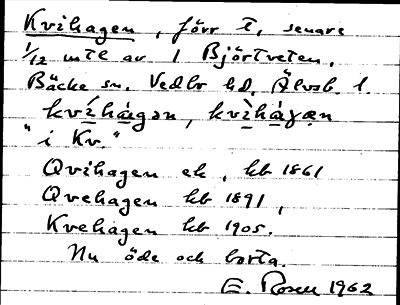 Kvihagen, förr t, senare
1/12 mtl av 1 Björtveten,
Bäcke sn. Vedbo hd, Älvsb. l.
kvíhágən, kvìhágæn
"i Kv."
Qvihagen ek, kb 1861
Qvehagen kb 1891,
Kvehagen kb 1905.
Nu öde och borta.
E. Rosell 1962